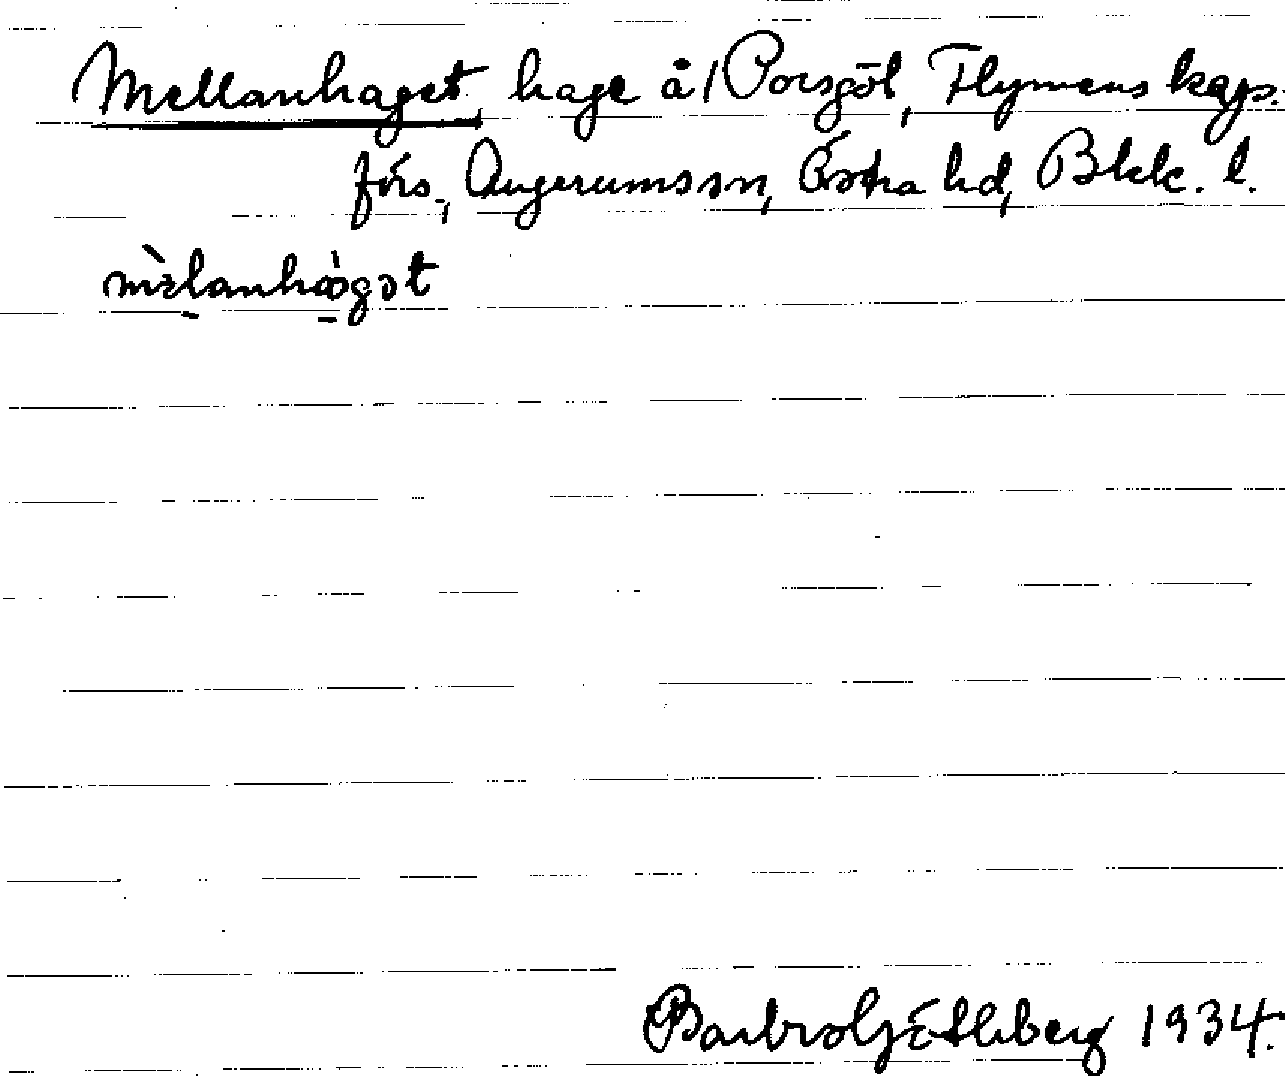 Mellanhaget, hage å 1 Porsgöl, Flymens kaps.
förs., Augerums sn, Östra hd, Blek. l.
Barbro Götlberg 1934.